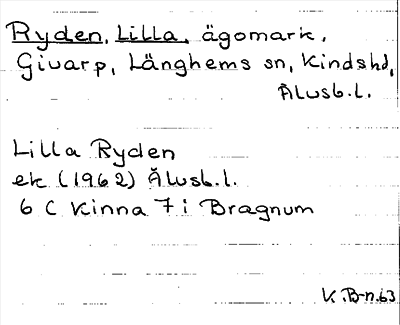 Ryden, Lilla, ägomark,
Givarp, Länghems sn, Kindshd,
Älvsb.l.
Lilla Ryden
ek (1962) Älvsb.l.
6 C Kinna 7 i Bragnum
K.B-n.63